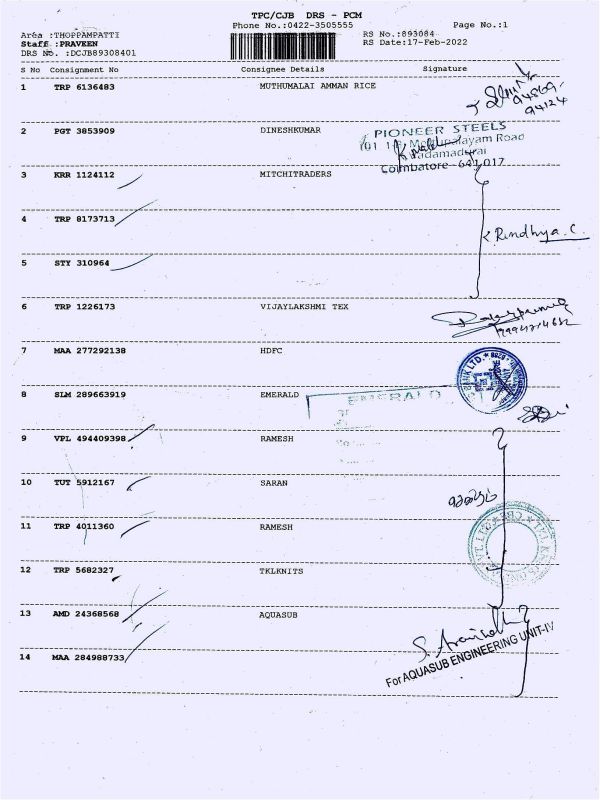 TPC/CJB DRS - PCM
Phone No.:0422-3505555
Page No.:1
Area :THOPPAMPATTI
Staff :PRAVEEN
DRS No. :DCJB89308401
RS No.:893084
RS Date:17-Feb-2022
S No Consignment No Consignee Details Signature
1 TRP 6136483 MUTHUMALAI AMMAN RICE
94869-
94124
2 PGT 3853909 DINESHKUMAR
PIONEER STEELS
Road
Coimbatore - 641 017
3 KRR 1124112 MITCHITRADERS
4 TRP 8173713
Rindhya.C.
5 STY 310964
6 TRP 1226173 VIJAYLAKSHMI TEX
7 MAA 277292138 HDFC
BANK LTD.
8 SLM 289663919 EMERALD
EMERALD
9 VPL 494409398 RAMESH
10 TUT 5912167 SARAN
11 TRP 4011360 RAMESH
12 TRP 5682327 TKLKNITS
13 AMD 24368568 AQUASUB
S. Aravindh
For AQUASUB ENGINEERING UNIT-IV
14 MAA 284988733